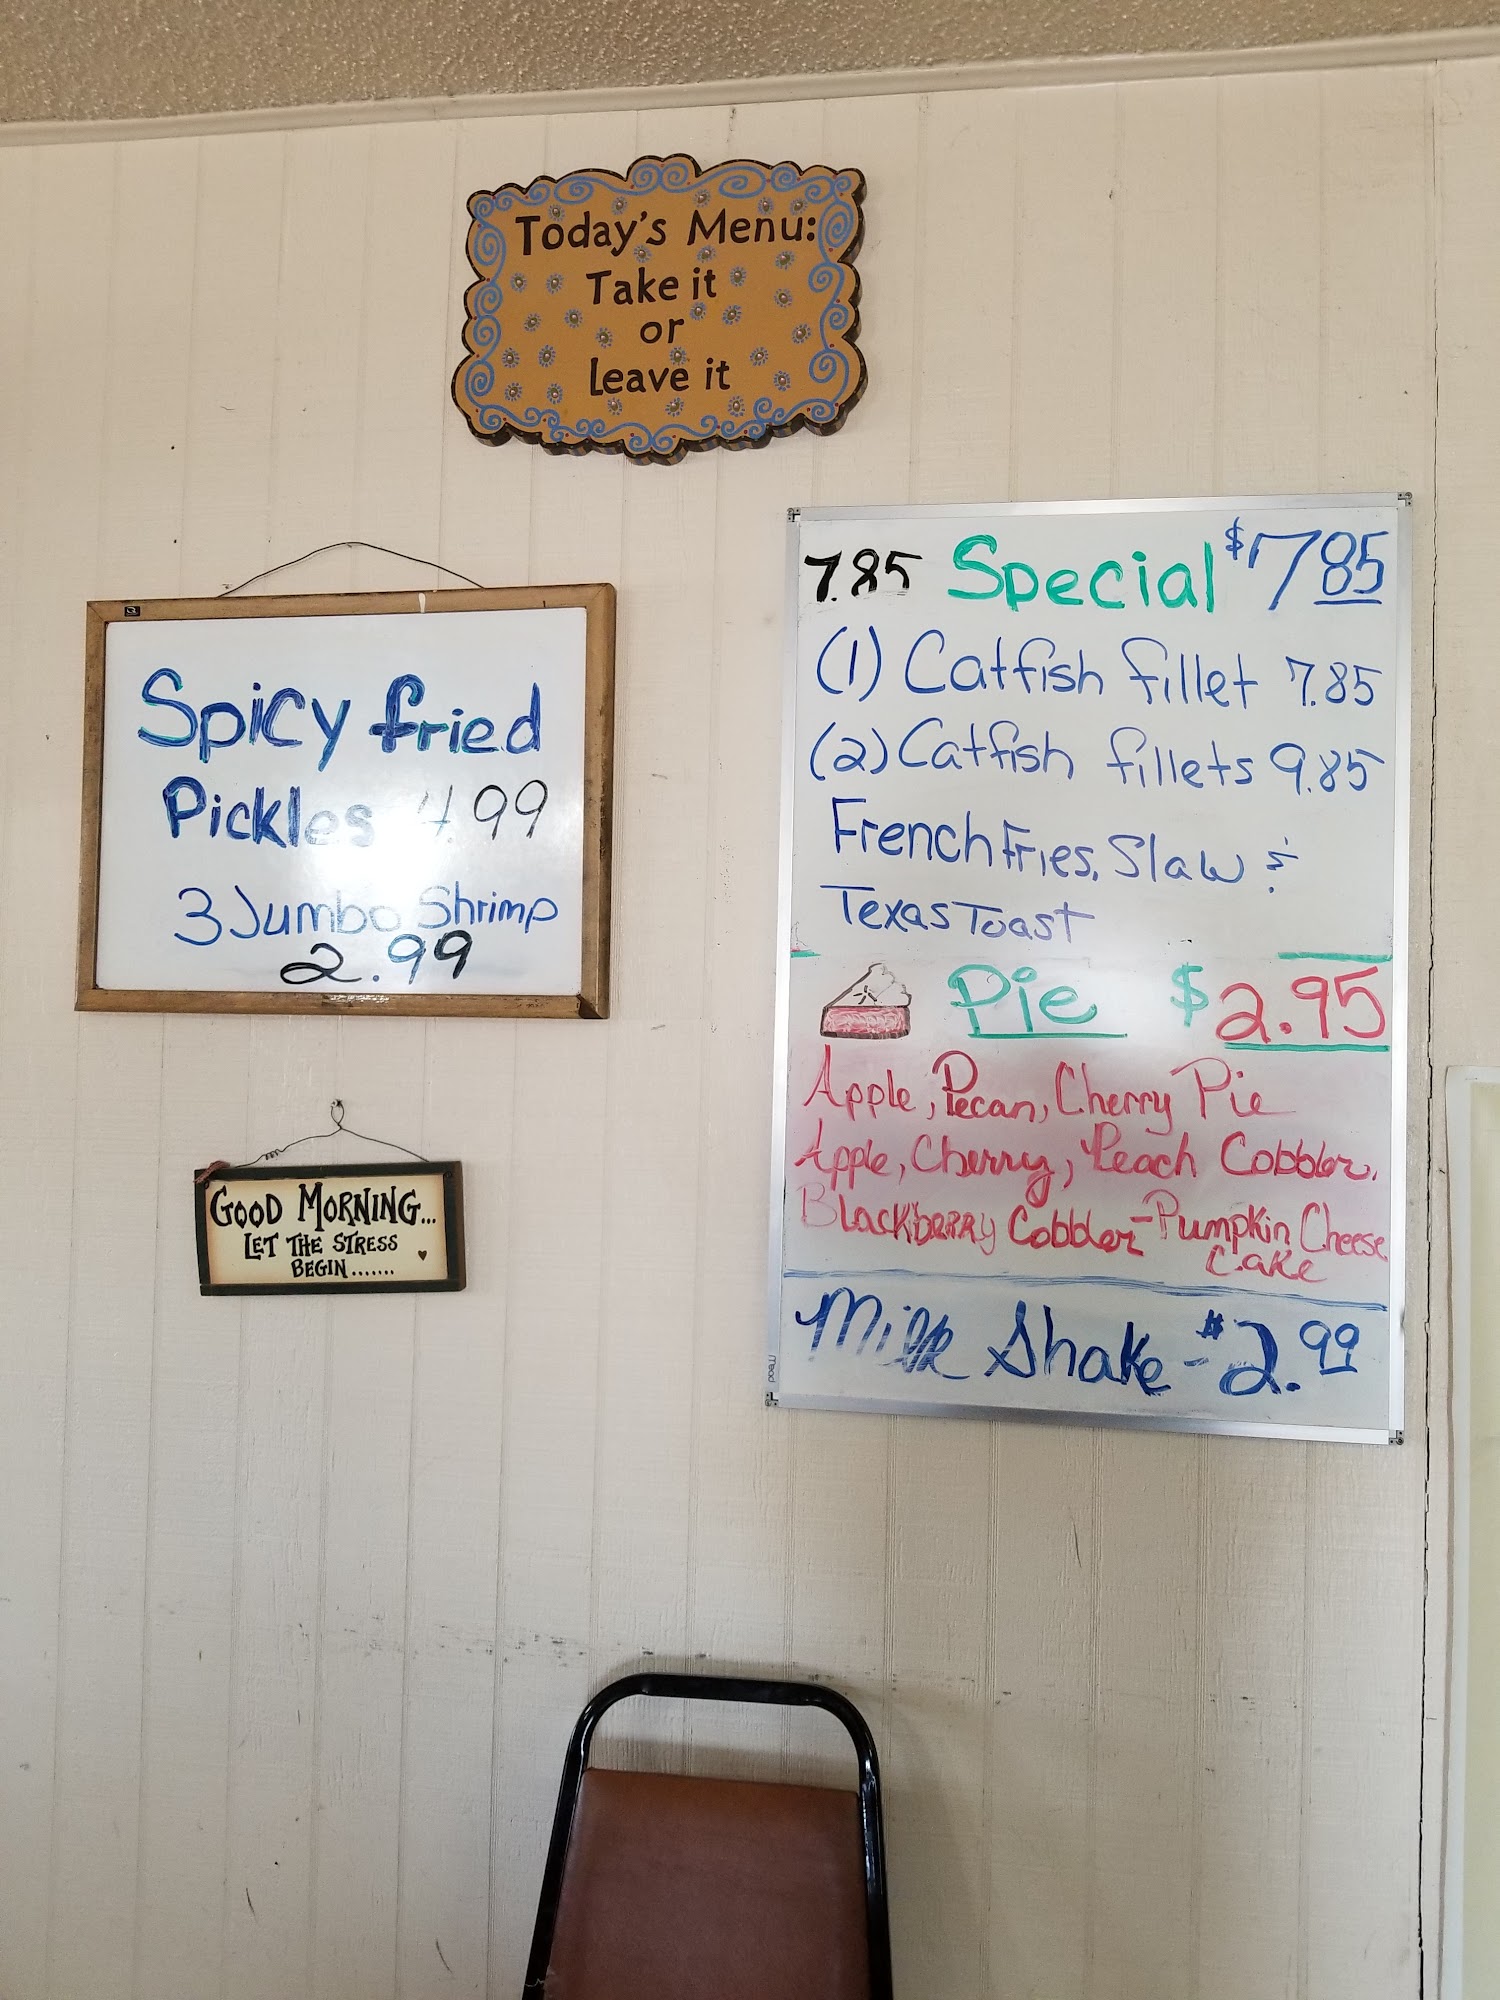 Today's Menu:
Take it
or
Leave it
Spicy fried
Pickles 4.99
3 Jumbo Shrimp
2.99
GOOD MORNING...
LET THE STRESS
BEGIN.......
7.85 Special $7.85
(1) Catfish fillet 7.85
(2) Catfish fillets 9.85
French Fries, Slaw &
Texas Toast
Pie $2.95
Apple, Pecan, Cherry Pie
Apple, Cherry, Peach Cobbler.
Blackberry Cobbler - Pumpkin Cheese
Cake
Milk Shake - $2.99
Mead